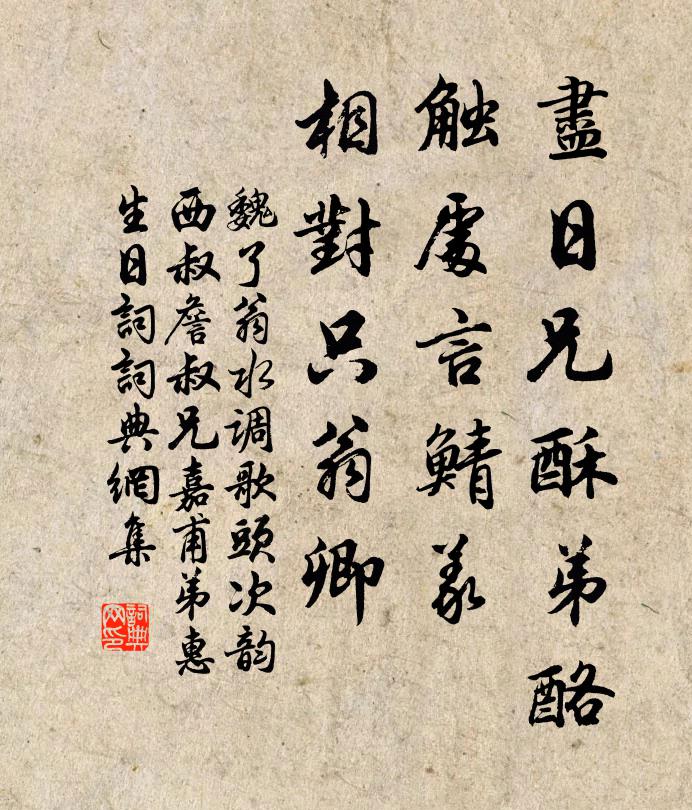 盡日兄酥弟酪
触處言鯖義
相對只翁卿
魏了翁水调歌頭次韵
西叔詹叔兄嘉甫弟惠
生日詞詞典網集
詞典网印